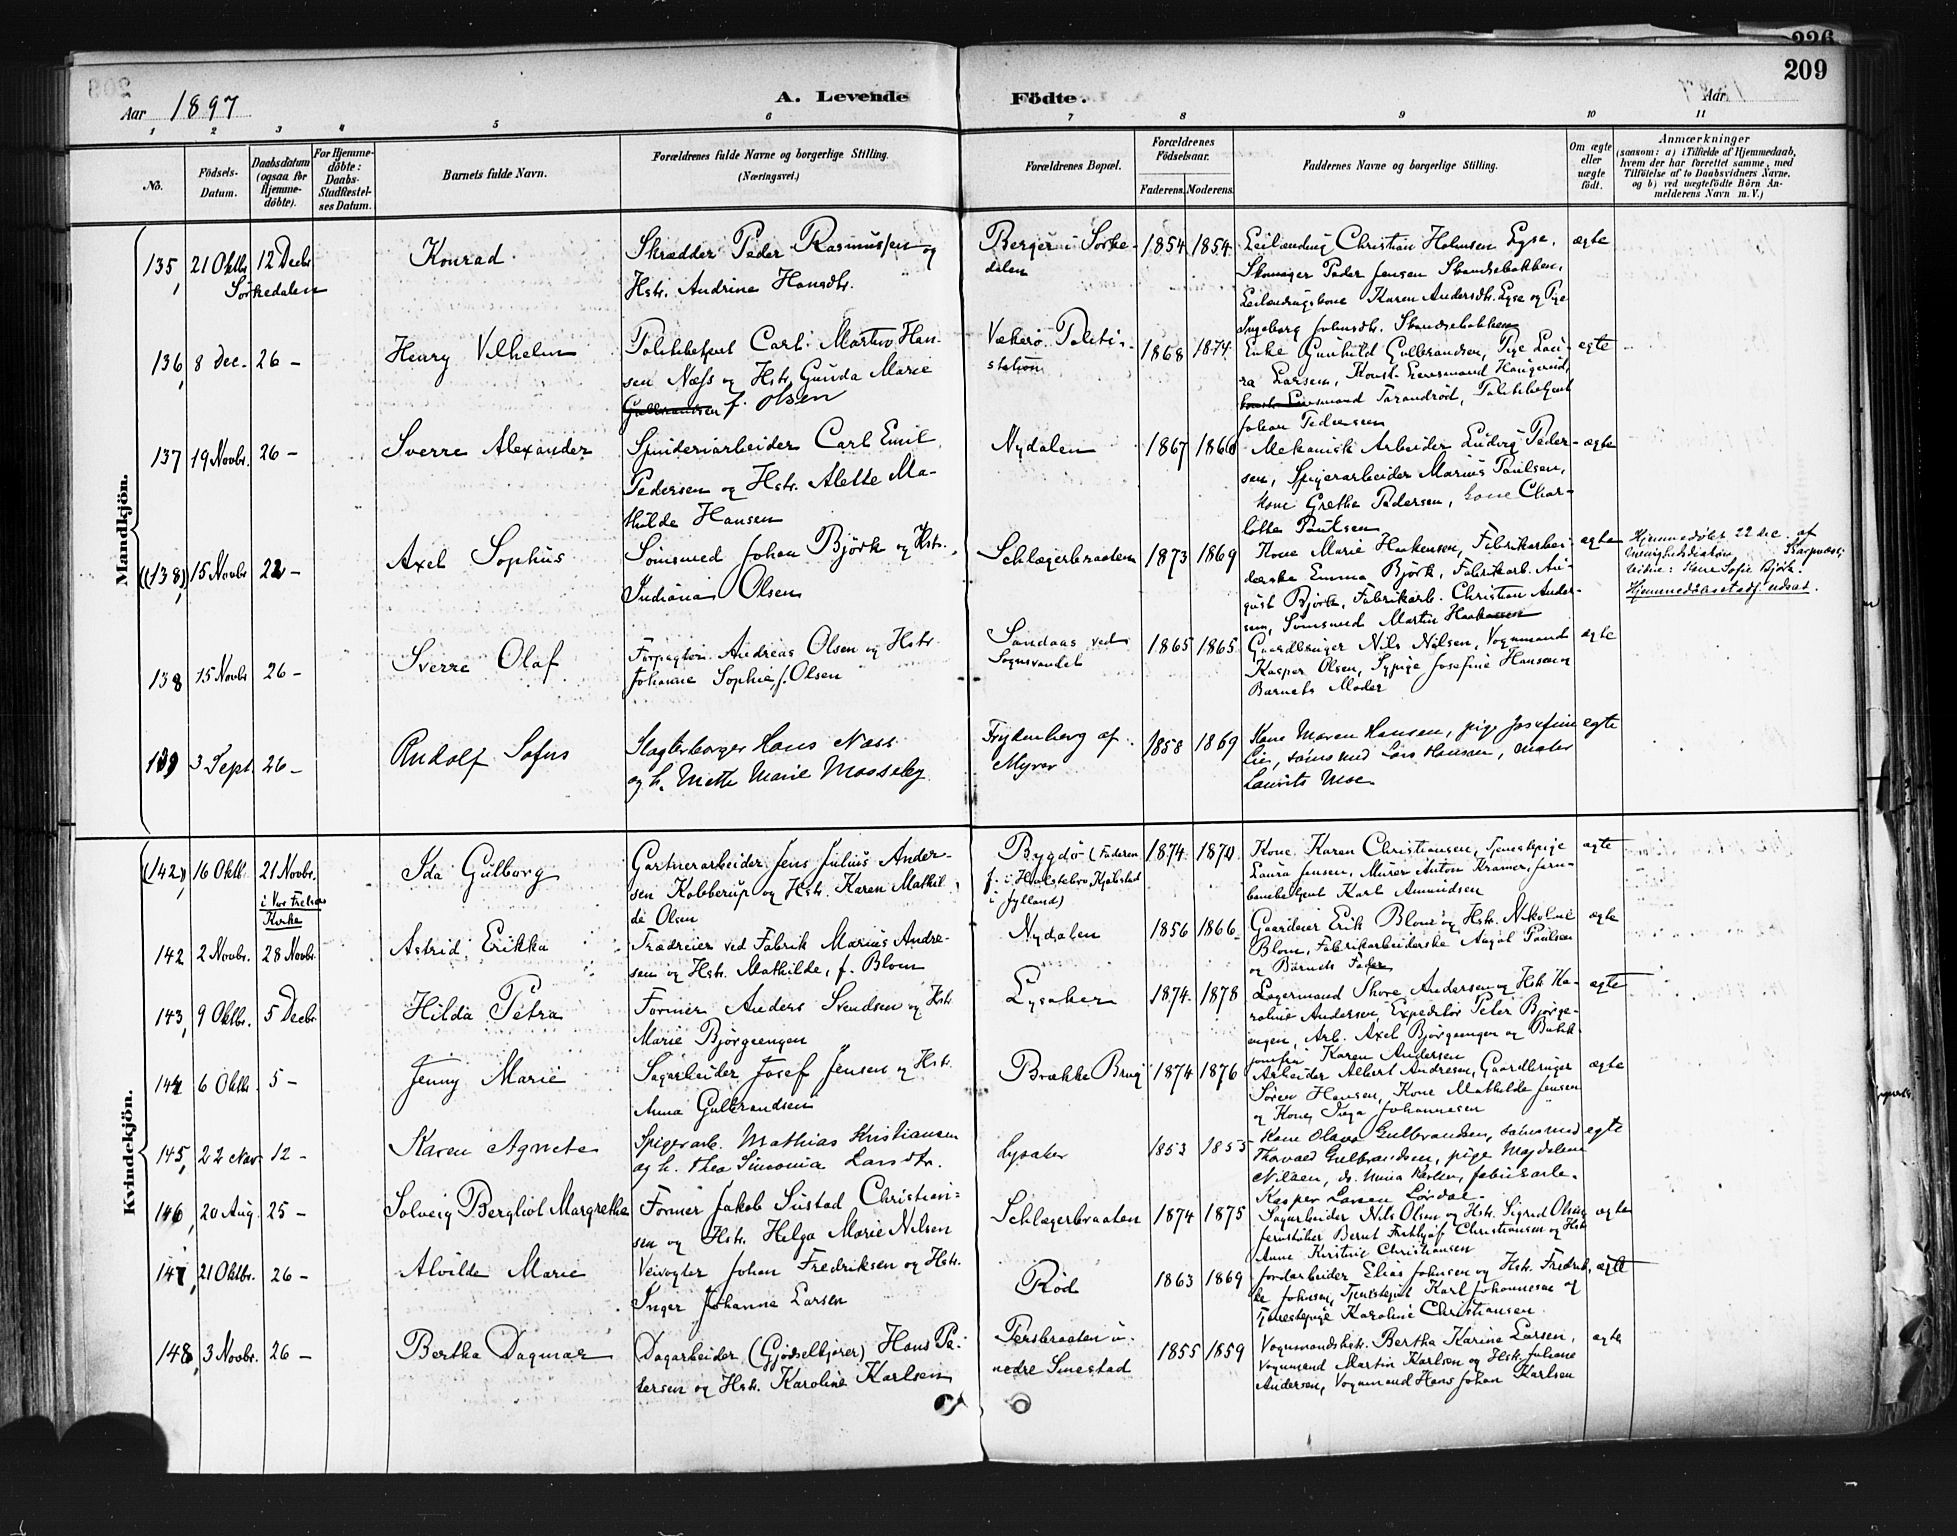 226
209
Aar 1897
A. Levende Födte.
Aar
1 2 3 4 5 6 7 8 9 10 11
No.
Födsels-Datum.
Daabsdatum (ogsaa for Hjemme-döbte).
For Hjemme-döbte: Daabs-Stadfæstel-ses Datum.
Barnets fulde Navn.
Forældrenes fulde Navne og borgerlige Stilling. (Næringsvei.)
Forældrenes Bopæl.
Forældrenes Födselsaar.
Faderens. Moderens.
Faddernes Navne og borgerlige Stilling.
Om ægte eller uægte födt.
Anmærkninger
(saasom: a) i Tilfælde af Hjemmedaab,
hvem der har forrettet samme, med
Tilföielse af to Daabsvidners Navne,
og b) ved uægtefödte Börn An-
melderens Navn m. V.)
Mandkjön.
135, 21 Oktbr 12 Decbr
Sørkedalen
Konrad
Skrædder Peder Rasmussen og
Hstr. Andrine Hansdtr.
Berger i Sørke-
dalen
1854 1854
Leilænding Christian Holmsen Lyse,
Skomager Peder Jensen Strandsebakken,
Leilændingskone Karen Andersdtr. Lyse og Pige
Ingeborg Johnsdtr.
ægte
136, 8 Dec. 26 -
Henry Vilhelm
Politibetjent Carl Martin Han-
sen Næss og Hstr. Gunda Marie
Gulbrandsen f. Olsen
Vækerø Politi-
station
1868 1874
Enke Gunhild Gulbrandsen, Pige Lovi-
ra Larsen, Konst. Lensmand Haugerud,
Lensmand Tarandrød, Politibetjent
Johan Pedersen
egte
137 19 Novbr. 26 -
Sverre Alexander
Spinderiarbeider Carl Emil
Pedersen og Hstr. Alette Ma-
thilde Hansen
Nydalen
1867 1866
Mekanisk Arbeider Ludvig Peder-
sen, Spigerarbeider Marius Paulsen,
Kone Grethe Pedersen, Kone Char-
lotte Paulsen
ægte
(138), 15 Novbr 22 -
Axel Sophus
Sømsmed Johan Bjørk og Hstr.
Indiana Olsen
Schlægerbraaten
1873 1869
Kone Marie Haakensen, Fabrikarbei-
derske Emma Bjørk, Fabrikarb. Au-
gust Bjørk, Fabrikarb. Christian Ander-
sen, Sømsmed Martin Haakensen
ægte
Hjemmedøbt 22 dec. af
menighedsdiakon
Vidne: Kone Sofie Bjørk.
Hjemmedøbsattest udsted.
138 15 Novbr 26 -
Sverre Olaf
Forpagter Andreas Olsen og Hstr.
Johanne Sophie f. Olsen
Sandaas ved
Sognsvandet
1865 1865
Gaardbruger Nils Nilsen, Vognmand
Kasper Olsen, Sypige Josefine Hansen og
Barnets Moder
ægte
139 3 Sept. 26 -
Rudolf Sofus
Slagterborger Hans Næss
og h. Mette Marie Mosseby
Frydenberg af
Myrer
1858 1869
Kone Maren Hansen, pige Josefine
Lie, sømsmed Lars Hansen, maler
Laurits Moe
egte
Kvindekjön.
(142), 16 Oktb. 21 Novbr.
i Vor Frelsers
Kirke
Ida Gulborg
Gartnerarbeider Jens Julius Ander-
sen Kobberup og Hstr. Karen Mathil-
de Olsen
Bygdø (Faderen
f. i Holstebro Kjøbstad
i Jylland)
1874 1870
Kone Karen Christiansen, Tjenestepige
Laura Jensen, Murer Anton Kramer, Jern-
banebetjent Karl Amundsen
ægte
142 2 Novbr. 28 Novbr.
Astrid Erikka
Trædreier ved Fabrik Marius Andre-
sen og Hstr. Mathilde, f. Blom
Nydalen
1856 1866
Gaardeier Erik Blom og Hstr. Nikoline
Blom, Fabrikarbeiderske Aagot Paulsen
og Barnets Fader
ægte
143, 9 Oktbr. 5 Decbr.
Hilda Petra
Former Anders Svendsen og Hstr.
Marie Bjørgeengen
Lysaker
1874 1878
Lagermand Thore Andersen og Hstr. Ka-
roline Andersen, Expeditør Peter Bjørge-
engen, Arb. Axel Bjørgeengen og Butik-
jomfru Karen Andersen
ægte
144 6 Oktbr. 5 -
Jenny Marie
Sagarbeider Josef Jensen og Hstr.
Anna Gulbrandsen
Brække Brug
1874 1876
Arbeider Albert Andresen, Gaardbruger
Søren Hansen, Kone Mathilde Jensen
og Kone Inga Johannesen
ægte
145, 22 Nov. 12 -
Karen Agnete
Spigerarb. Mathias Kristiansen
og h. Thea Simonia Larsdtr.
Lysaker
1853 1855
Kone Olava Gulbrandsen, sømsmed
Thorvald Gulbrandsen, pige Magdalene
Nilsen, do. Maria Karlsen, fabrikarb.
Kasper Larsen Lørdal
egte
146, 20 Aug. 25 -
Solveig Bergliot Margrethe
Former Jakob Sustad Christian-
sen og Hstr. Helga Marie Nilsen
Schlægerbraaten
1874 1875
Sagarbeider Nils Olsen og Hstr. Sigrid Olsen,
Jernstøber Bernt Frithjof Christiansen og Hstr.
Anne Kirstine Christiansen
ægte
147, 21 Oktbr. 26 -
Alvilde Marie
Veivogter Johan Fredriksen og Hstr.
Inger Johanne Larsen
Rød
1863 1869
Jordarbeider Elias Johnsen og Hstr. Fredrik-
ke Johnsen, Tjenestegut Karl Johannesen og
Tjenestepige Karoline Christiansen.
ægte
148, 3 Novbr. 26 -
Bertha Dagmar
Dagarbeider (Gjødselkjører) Hans Pe-
tersen og Hstr. Karoline Karlsen
Persbraaten u.
nedre Smestad
1855 1859
Vognmandshstr. Bertha Karine Larsen,
Vognmand Martin Karlsen og Hstr. Juliane
Andersen, Vognmand Hans Johan Karlsen
ægte